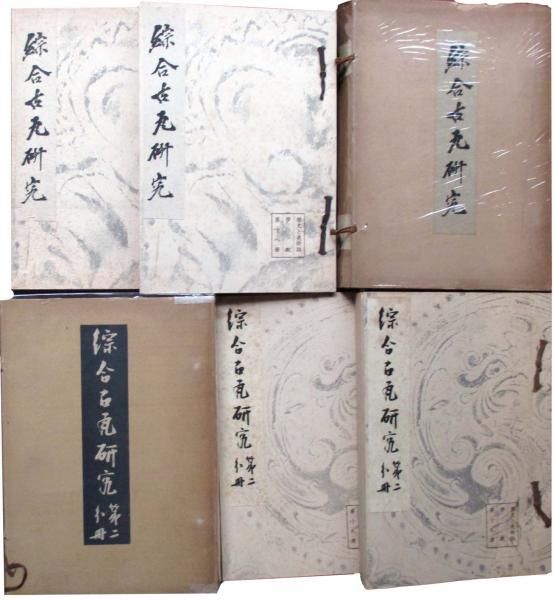 綜合古瓦研究
綜合古瓦研究
綜合古瓦研究
綜合古瓦研究
第二
分冊
綜合古瓦研究
第二
分冊
綜合古瓦研究
第二
分冊